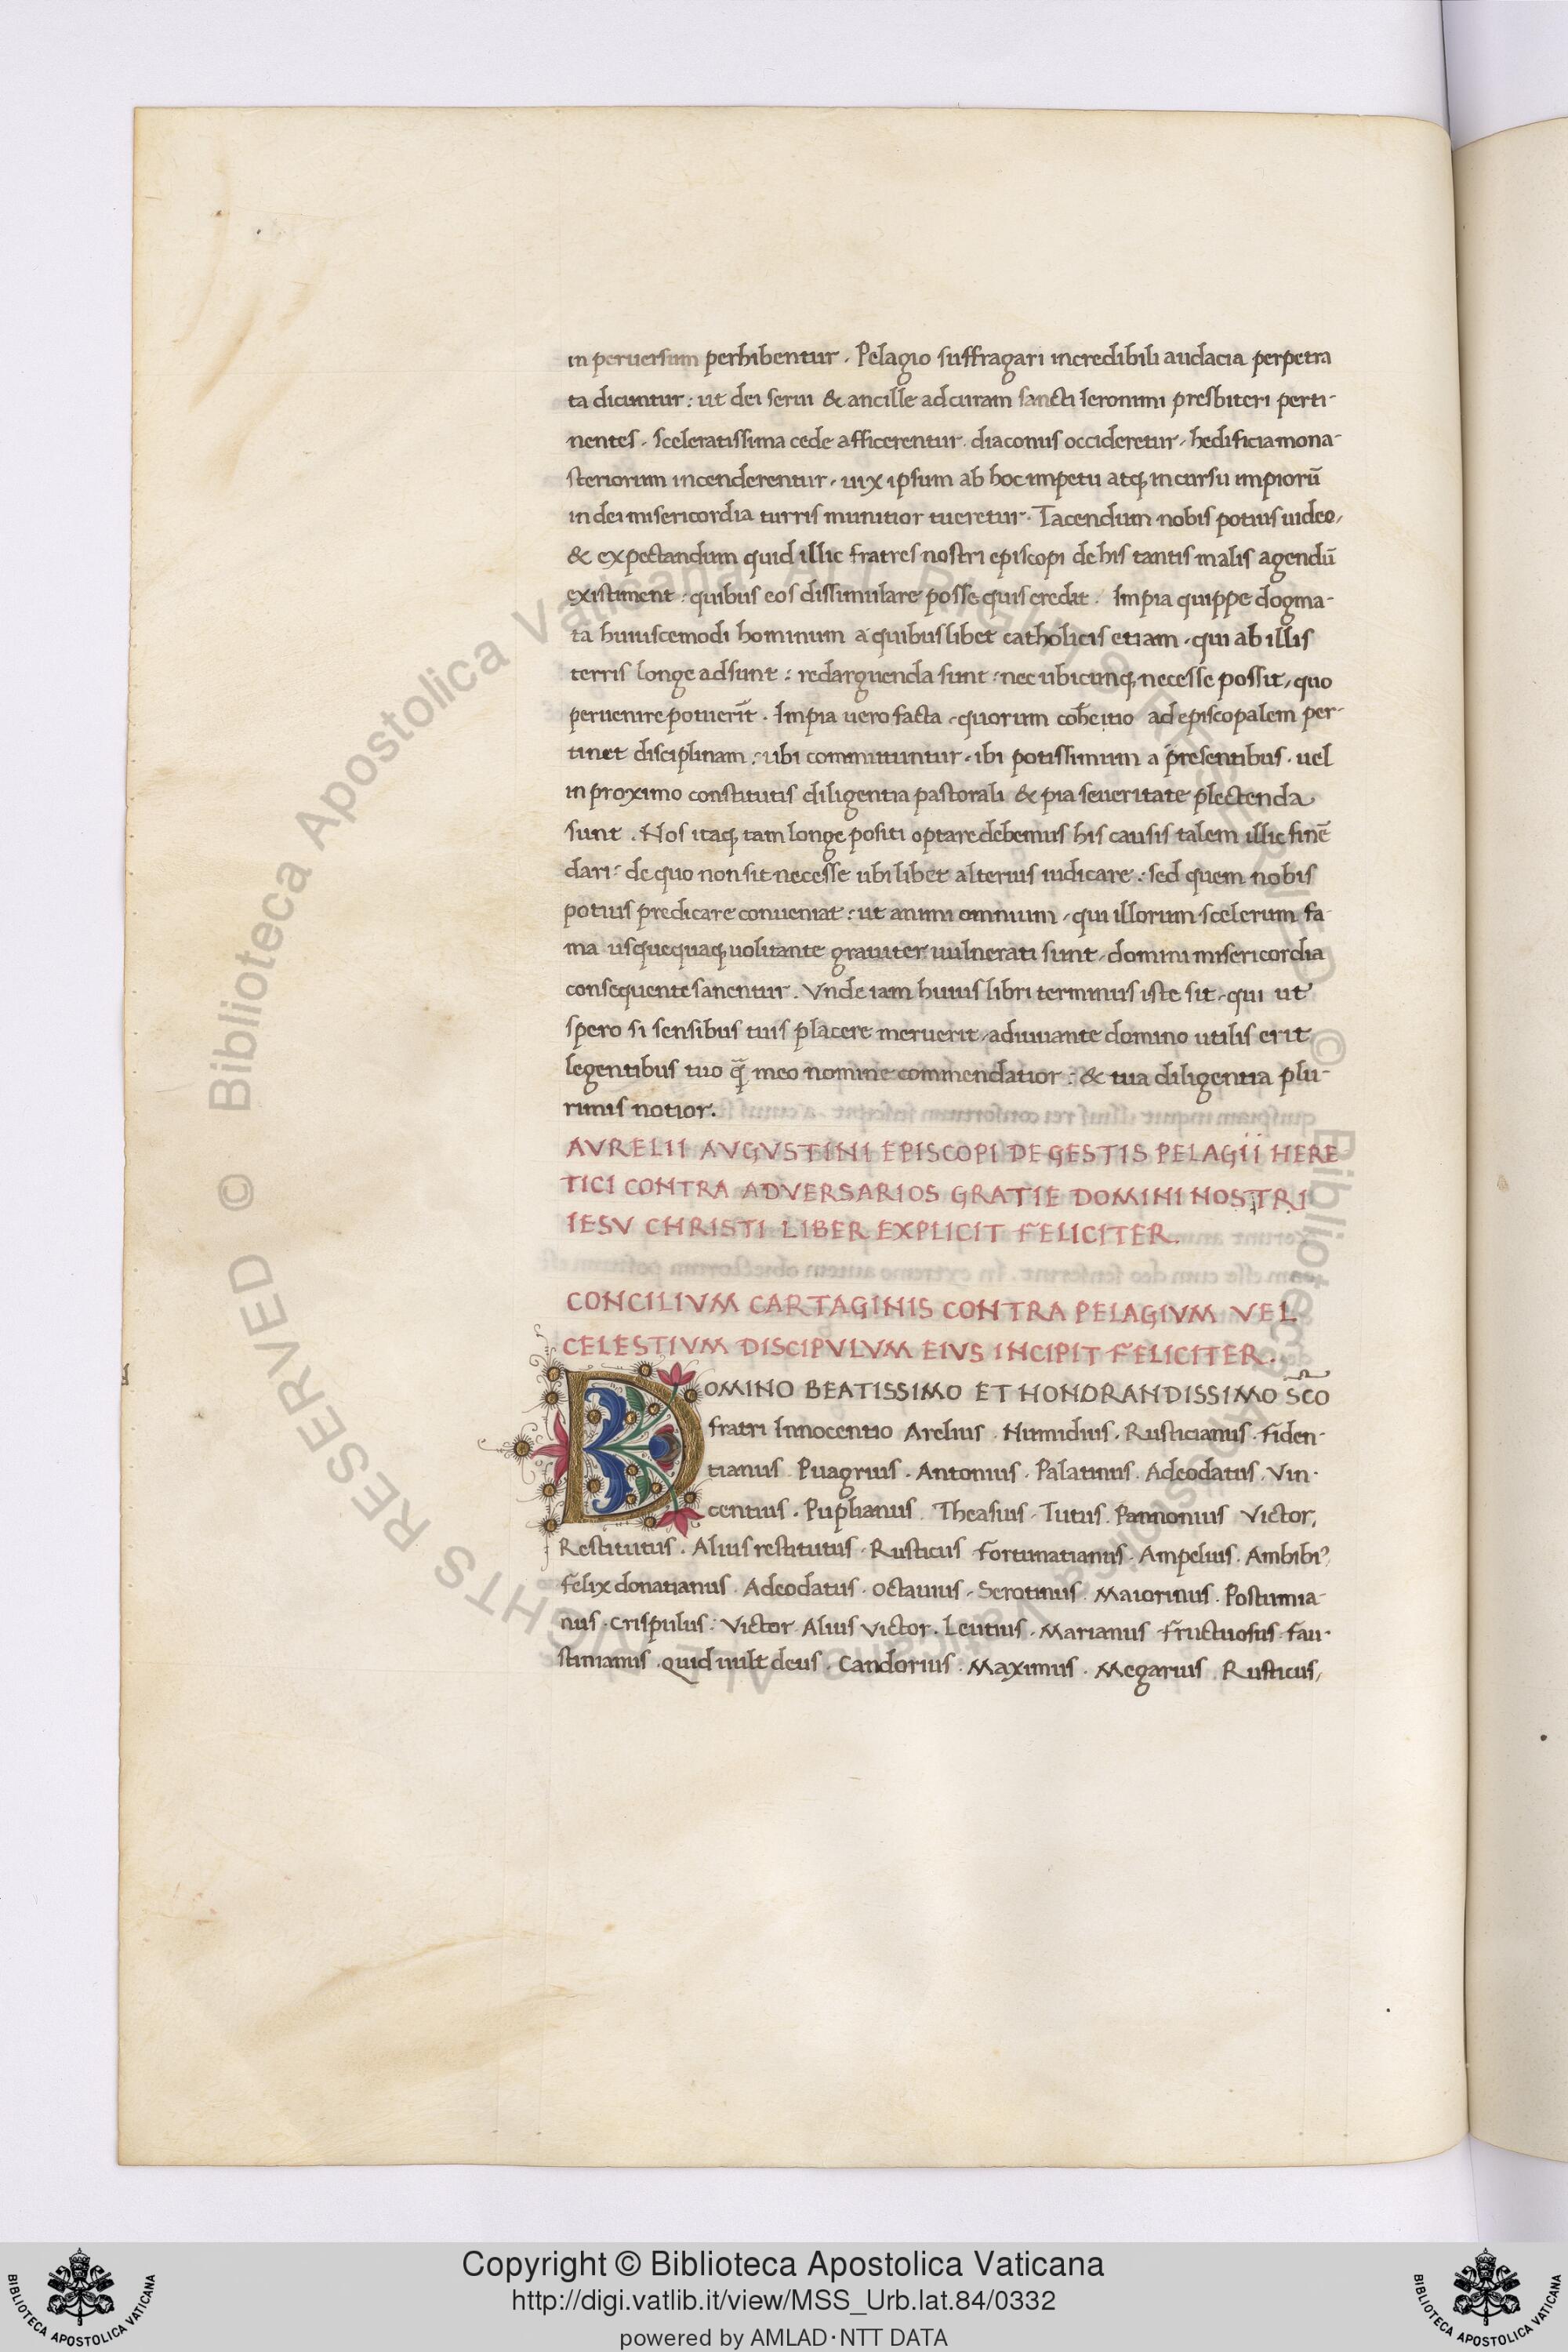 in peruersum perhibentur. Pelagio suffragari incredibili audacia perpetra
ta dicuntur: ut dei serui & ancille ad curam sancti Ieronimi presbiteri perti-
nentes. sceleratissima cede afficerentur. diaconus occideretur. hedificia mona-
steriorum incenderentur. uix ipsum ab hoc impetu atq; incursu impiorū
in dei misericordia turris munitior tueretur. Tacendum nobis potius uideo,
& expectandum quid illic fratres nostri episcopi de his tantis malis agendū
existiment: quibus eos dissimulare posse quis credat. Impia quippe dogma-
ta huiuscemodi hominum a quibuslibet catholicis etiam. qui ab illis
terris longe adsunt: redarguenda sunt: nec ubicunq; necesse possit, quo
peruenire potuerīt. Impia uero facta. quorum ad episcopalem per-
tinet disciplinam: ubi committuntur. ibi potissimum a presentibus. uel
in proximo constitutis diligentia pastorali & pia seueritate plectenda
sunt. Nos itaq; tam longe positi optare debemus his causis talem illic finē
dari: de quo non sit necesse ubilibet alterius iudicare: sed quem nobis
potius predicare conueniat: ut animi omnium. qui illorum scelerum fa-
ma usquequaq; uolitante grauiter uulnerati sunt. domini misericordia
consequente sanentur. Vnde iam huius libri terminus iste sit. qui ut
spero si sensibus tuis placere meruerit. adiuuante domino utilis erit
legentibus tuo q̄ meo nomine commendatior: & tua diligentia plu-
rimis notior.
AVRELII AVGVSTINI EPISCOPI DE GESTIS PELAGII HERE
TICI CONTRA ADVERSARIOS GRATIE DOMINI NOSTRI
IESV CHRISTI LIBER EXPLICIT FELICITER.
CONCILIVM CARTAGINIS CONTRA PELAGIVM VEL
CELESTIVM DISCIPVLVM EIVS INCIPIT FELICITER.
DOMINO BEATISSIMO ET HONORANDISSIMO SCO
fratri Innocentio Arelius. Numidius. Rusticianus. Fiden-
tianus. Puagrius. Antonius. Palatinus. Adeodatus. Vin-
centius. Puplianus. Theasius. Tutus. Pannonius Victor,
Restitutus. Alius restitutus. Rusticus Fortunatianus. Ampelius. Ambibi9
Felix donatianus. Adeodatus. Octauius. Serotinus. Maiorinus. Postumia-
nus. Crispulus: Victor. Alius Victor. Leutius. Marianus Fructuosus. Fau-
stinianus. Quid uult deus. Candorius. Maximus. Megarius. Rusticus,
© Biblioteca Apostolica Vaticana ALL RIGHTS RESERVED © Biblioteca Apostolica Vaticana ALL RIGHTS RESERVED
BIBLIOTECA APOSTOLICA VATICANA
Copyright © Biblioteca Apostolica Vaticana
http://digi.vatlib.it/view/MSS_Urb.lat.84/0332
powered by AMLAD·NTT DATA
BIBLIOTECA APOSTOLICA VATICANA